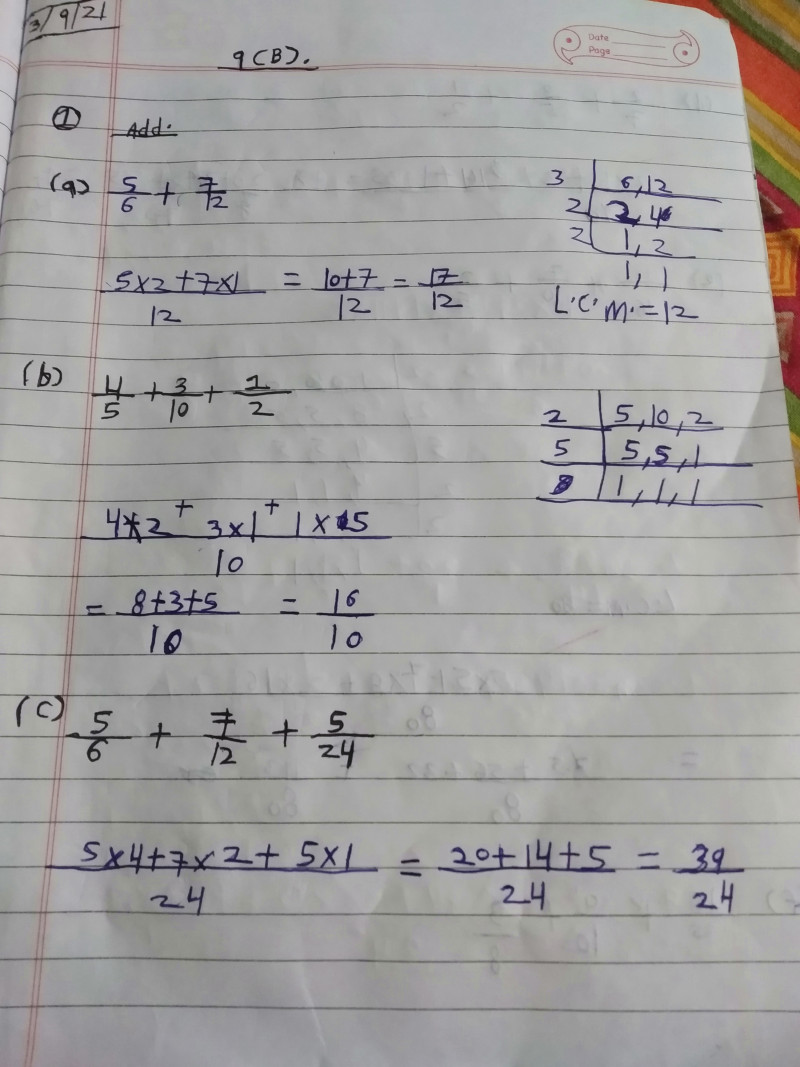 3/9/21
Date
Page
9(B).
① Add.
(a) 5/6 + 7/12
3 | 6,12
2 | 2,4
2 | 1,2
1,1
L.C.M.=12
5x2+7x1/12 = 10+7/12 = 17/12
(b) 4/5 + 3/10 + 1/2
2 | 5,10,2
5 | 5,5,1
1,1,1
4x2 + 3x1 + 1x5/10
= 8+3+5/10 = 16/10
(c) 5/6 + 7/12 + 5/24
5x4+7x2+5x1/24 = 20+14+5/24 = 39/24